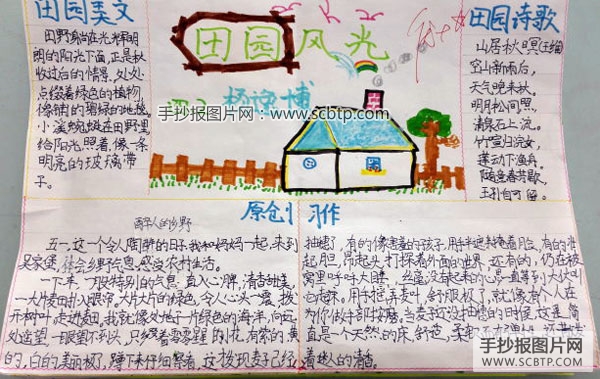 田园美文
田野躺在光辉明
朗的阳光下面,正是秋
收过后的情景,处处
点缀着绿色的植物,
像铺的碧绿的地毯。
小溪蜿蜒在田野里
给阳光照着,像一条
明亮的玻璃带
子。
田园风光
杨逸博
手抄报图片网:www.scbtp.com
田园诗歌
山居秋暝(王维)
空山新雨后,
天气晚来秋。
明月松间照,
清泉石上流。
竹喧归浣女,
莲动下渔舟。
随意春芳歇,
王孙自可留。
原创习作
醉人的乡野
五一,这个令人陶醉的日子,我和妈妈一起,来到
吴家堡,体会乡野气息,感受农村生活。
一下来,一股特别的气息,直入心脾,清香甜美,
一大片麦田
大片大片的绿色,令人心头一震,拨
开树叶,走进麦田,我就像处于一片绿色的海洋,向远
处遥望,一眼望不到头,只
的小花,有紫的、黄
的,白的,美丽极了,蹲下来仔细察看,这
发现麦子已经
抽穗了,有的像害羞的孩子,用手半遮半掩着脸,有的准
起胆,昂起头,打探着外面的世界,还有的,仍在被
窝里呼呼大睡,丝毫没有起来的意思,直等到大伙叫
它起床。用手摇弄麦叶,舒服极了,就像有人在
为你做特部按摩。当麦子还没抽穗的时候,这里简
直是一个天然的床,舒苍,柔软
着迷人的清香。
手抄报图片网
WWW.SCBTP.COM